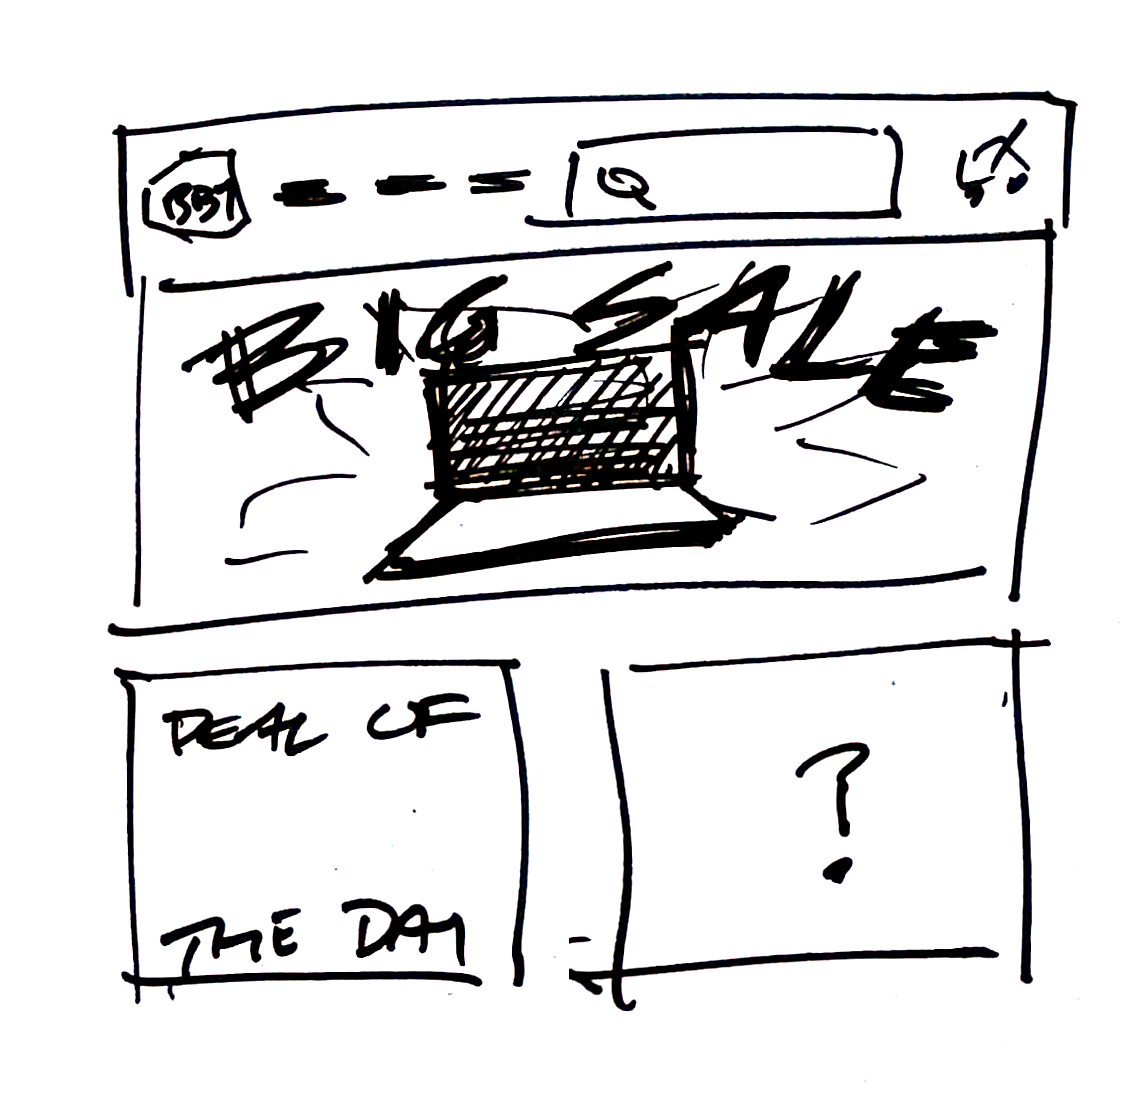 BBY
BIG SALE
DEAL OF
?
THE DAY